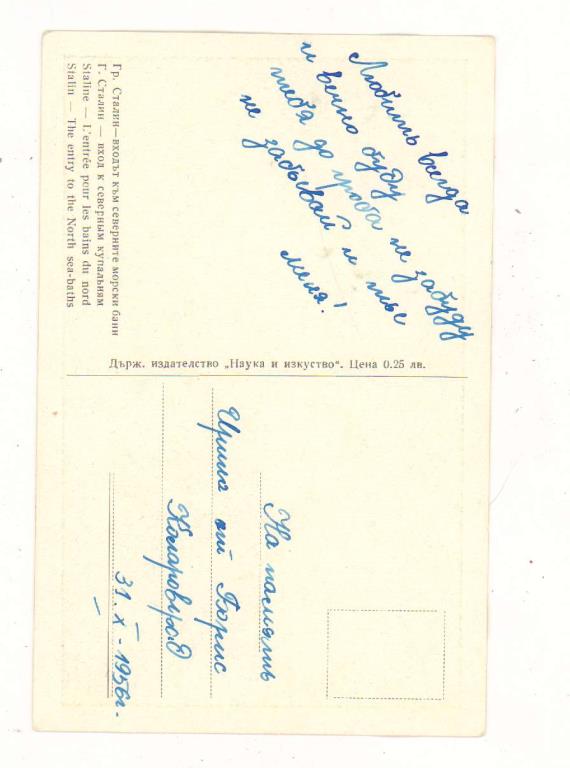 Любить всегда
и вечно буду
тебя до гроба не забуду
не забывай и ты
меня!
Гр. Сталин—входът към северните морски бани
Г. Сталин — вход к северным купальням
Staline — L'entrée pour les bains du nord
Stalin — The entry to the North sea-baths
Държ. издателство „Наука и изкуство“. Цена 0.25 лв.
На память
Ирина от Борис
31. X - 1956 г.